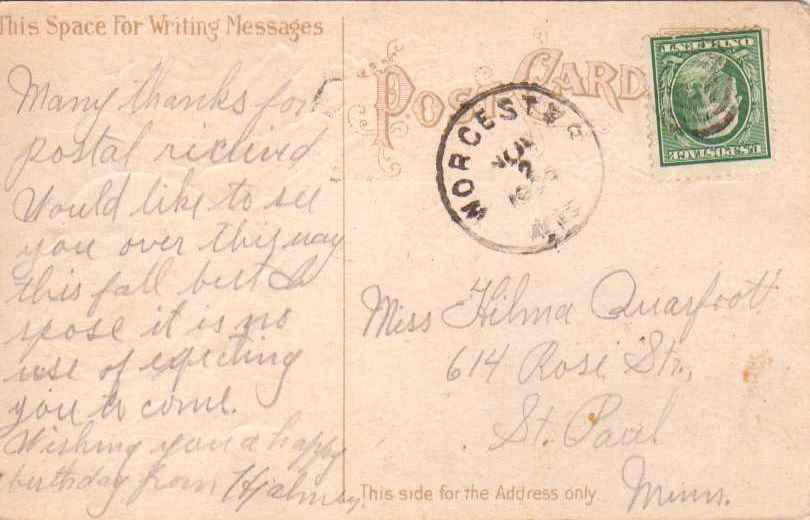 This Space For Writing Messages
Many thanks for
postal recieved
Would like to see
you over this way
this fall but I
spose it is no
use of expecting
you to come.
Wishing you a happy
birthday from Hjalmer.
POST CARD
U.S.POSTAGE
ONE CENT
WORCESTER
NOV
2
WIS
Miss Hilma Quarfoot
614 Rose Str.,
St. Paul
Minn.
This side for the Address only